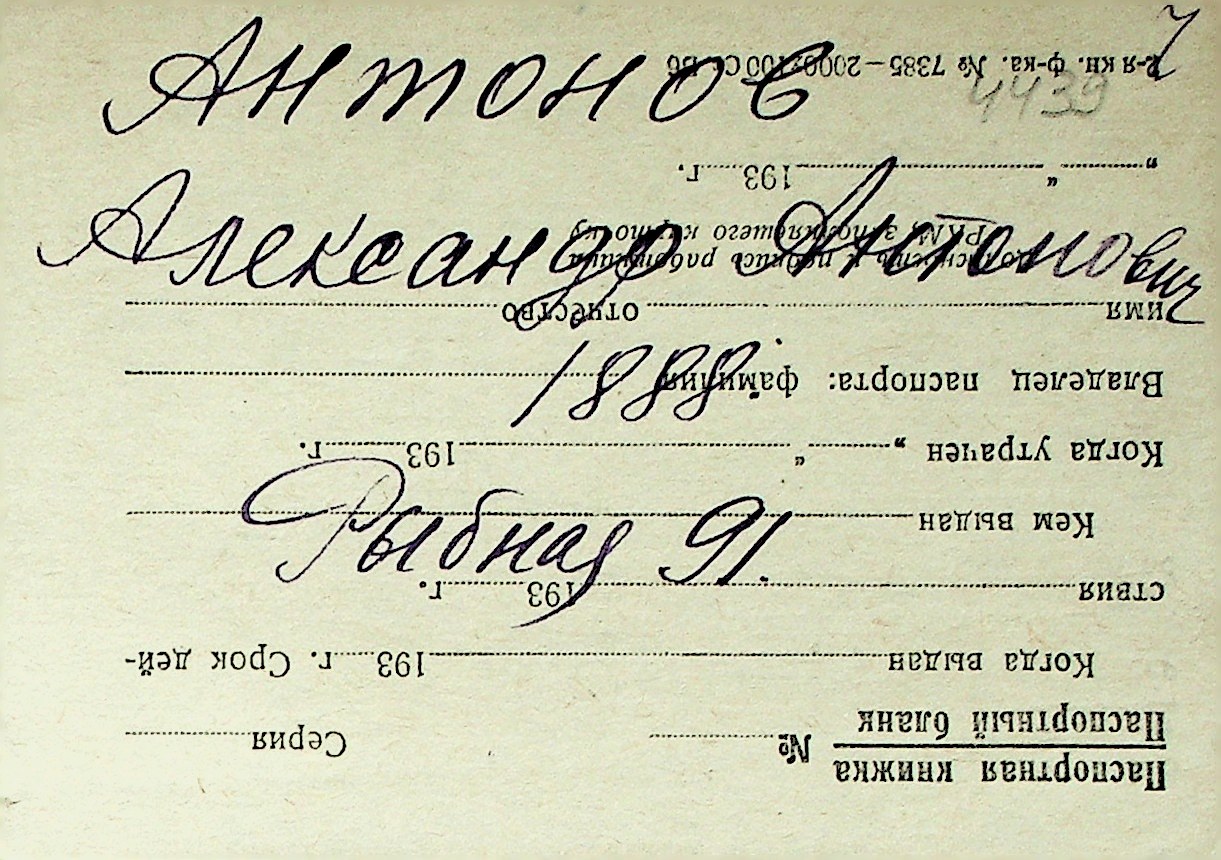 Антонов
4439
Александр Антонович
1888.
Рыбная 91.
Паспортная книжка
Паспортный бланк
№ Серия
Когда выдан 193 г. Срок дей-
ствия 193 г.
Кем выдан
Когда утрачен „ “ 193 г.
Владелец паспорта: фамилия
имя отчество
Должность и подпись работника
РКМ заполнявшего карточку
„ “ 193 г.
2-я кн. ф-ка. № 7385—2000×100